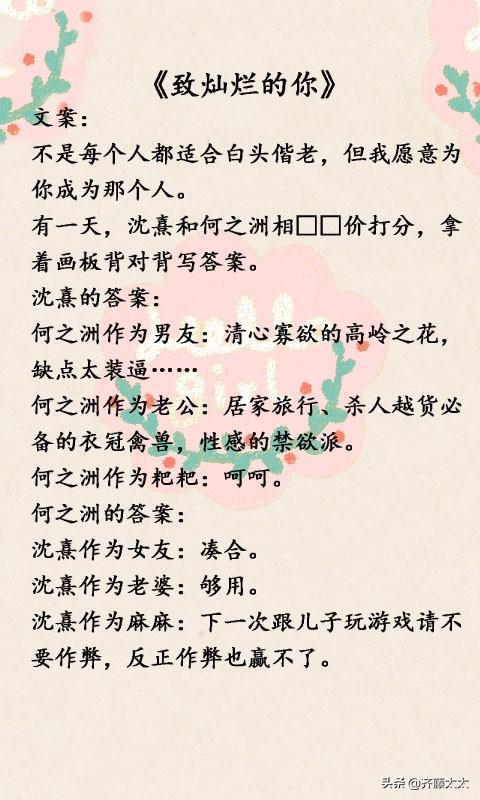 《致灿烂的你》
文案：
不是每个人都适合白头偕老，但我愿意为
你成为那个人。
有一天，沈熹和何之洲相□□价打分，拿
着画板背对背写答案。
沈熹的答案：
何之洲作为男友：清心寡欲的高岭之花，
缺点太装逼……
何之洲作为老公：居家旅行、杀人越货必
备的衣冠禽兽，性感的禁欲派。
何之洲作为粑粑：呵呵。
何之洲的答案：
沈熹作为女友：凑合。
沈熹作为老婆：够用。
沈熹作为麻麻：下一次跟儿子玩游戏请不
要作弊，反正作弊也赢不了。
little
girl
头条 @齐藤太太